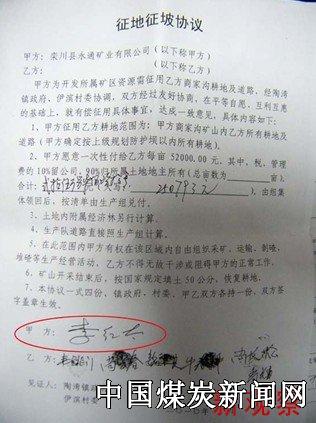 征地征坡协议
甲方：栾川县永通矿业有限公司（以下称甲方）
乙方：（以下称乙方）
甲方为开发所属矿区资源需征用乙方商家沟耕地及道路，经陶湾
镇政府、伊滨村委协调，双方经过友好协商，在平等自愿、互利互惠
的基础上，就有偿征用具体事宜，达成一致意见，具体内容如下：
1、甲方征用乙方耕地范围为：甲方商家沟矿山内乙方所有耕地及
道路（甲方确定按上级规划防护坝以内所有耕地）。
2、甲方愿意一次性付给乙方每亩 52000.00 元。其中，税、管理
费的 10%留公司，90%归所属土地地主所有（总亩数为 亩）
合计： 250793元，由组集
体领回后，按清单由生产组兑付。
3、土地内所属经济林另行计算。
4、生产队道路直接照生产组计算。
5、在此范围内甲方有权在该区域内自由组织采矿、运输、制喀、
堆砼等生产经营活动，乙方不得无故干涉或阻碍甲方的正常工作。
6、矿山开采结束后，按国家规定填土 50 公分，恢复耕地。
7、本协议一式四份，镇政府、村委，甲乙双方各持一份，双方签
字盖章生效。
甲 方：李红
乙 方：
见证人：陶湾镇政
伊滨村委
中国煤炭新闻网